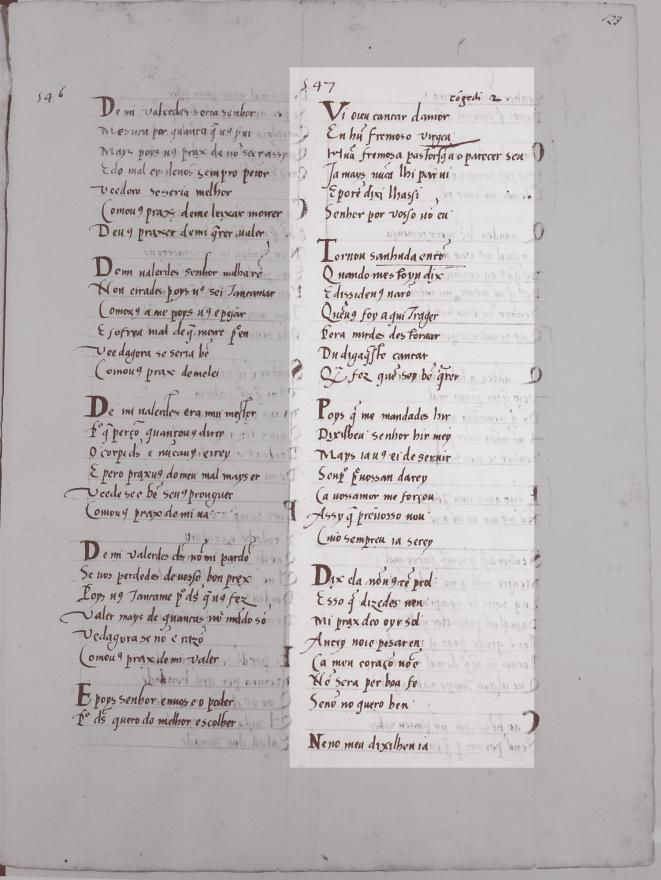 123
146
De mi valerdes seria senhor
Mesura por quanta q̄ uꝯ fui
Mays poys uꝯ prax de no seer assy
E do mal ey de nos sempro peior
Veedora se seria melhor
Comouꝯ prax de me leixar morrer
Deuꝯ praxer de mi q̄rer valer
Demi valerdes senhor
Non errades poys uꝯ sei
Comouꝯ a me poys uꝯ e pesar
E sofreu mal de q̄ moire
Veedagora se seria bē
Comouꝯ prax de me lei
De mi valerdes era mui mester
Pꝰ q̄ perço quantouꝯ direy
O corpe dꝭ e nūcauꝯ eirey
E pero praxuꝯ do meu mal mays er
Veede se e bē seuꝯ prouguer
Comouꝯ prax de mi ua
De mi valerdes dꝭ nō mi pardō
Se uos perdedes de uosso bon prex
Poys uꝯ Iancame pꝰ dꝭ q̄ uꝯ fez
Valer mays de quantas nō mūdo sō
Vedagora se nō e razō
Comouꝯ prax de mi valer
E poys senhor en uos e o poder
Pꝰ dꝭ quered o melhor escolher
147
Vi oieu cantar damor
En hū fremoso virgeu
Hūa fremosa pastorq̄ a o parecer seu
Ja mays nūca lhi par ui
E porē dixi lhassi
Senhor por vosso uō eu
Tornou sanhuda entō
Quando mesto oyu dix
E dissedeuꝯ narō
Quēuꝯ foy aqui Trager
Pera mirdes destoruar
Du digaq̄ste cantar
Q̄ fez quē sey bē q̄rer
Poys q̄ me mandades hir
Dixilheu senhor hir mey
Mays ia uꝯ ei de seruir
Senpꝰ q̄uossan darey
Ca uossamor me forçou
Assy q̄ preiuosso uou
Cuio sempreu ia serey
Dix ela nō uꝯ tē prol
Esso q̄ dizedes nen
Mi prax deo oyr sol
Antey noie pesar en
Ca meu coraçō nō e
Nē sera per boa fe
Senō no quero ben
Neno meu dixilhen ia